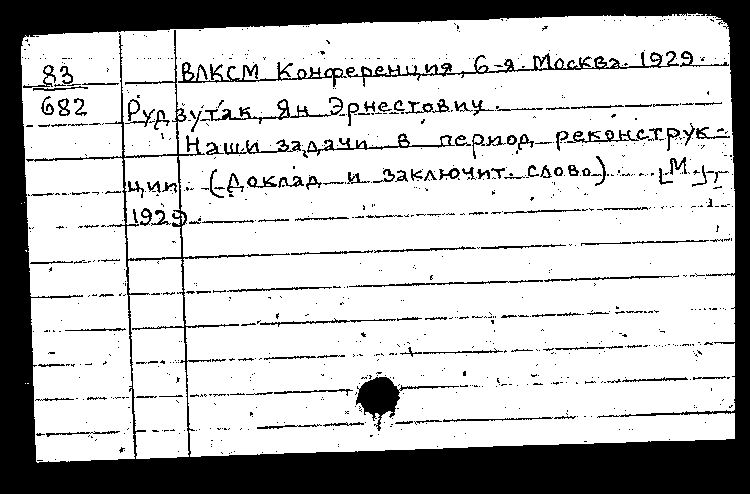 83 ВЛКСМ Конференция, 6-я. Москва. 1929.
682 Рудзутак, Ян Эрнестович.
Наши задачи в период реконструк-
ции. (Доклад и заключит. слово) [М.],
1929.